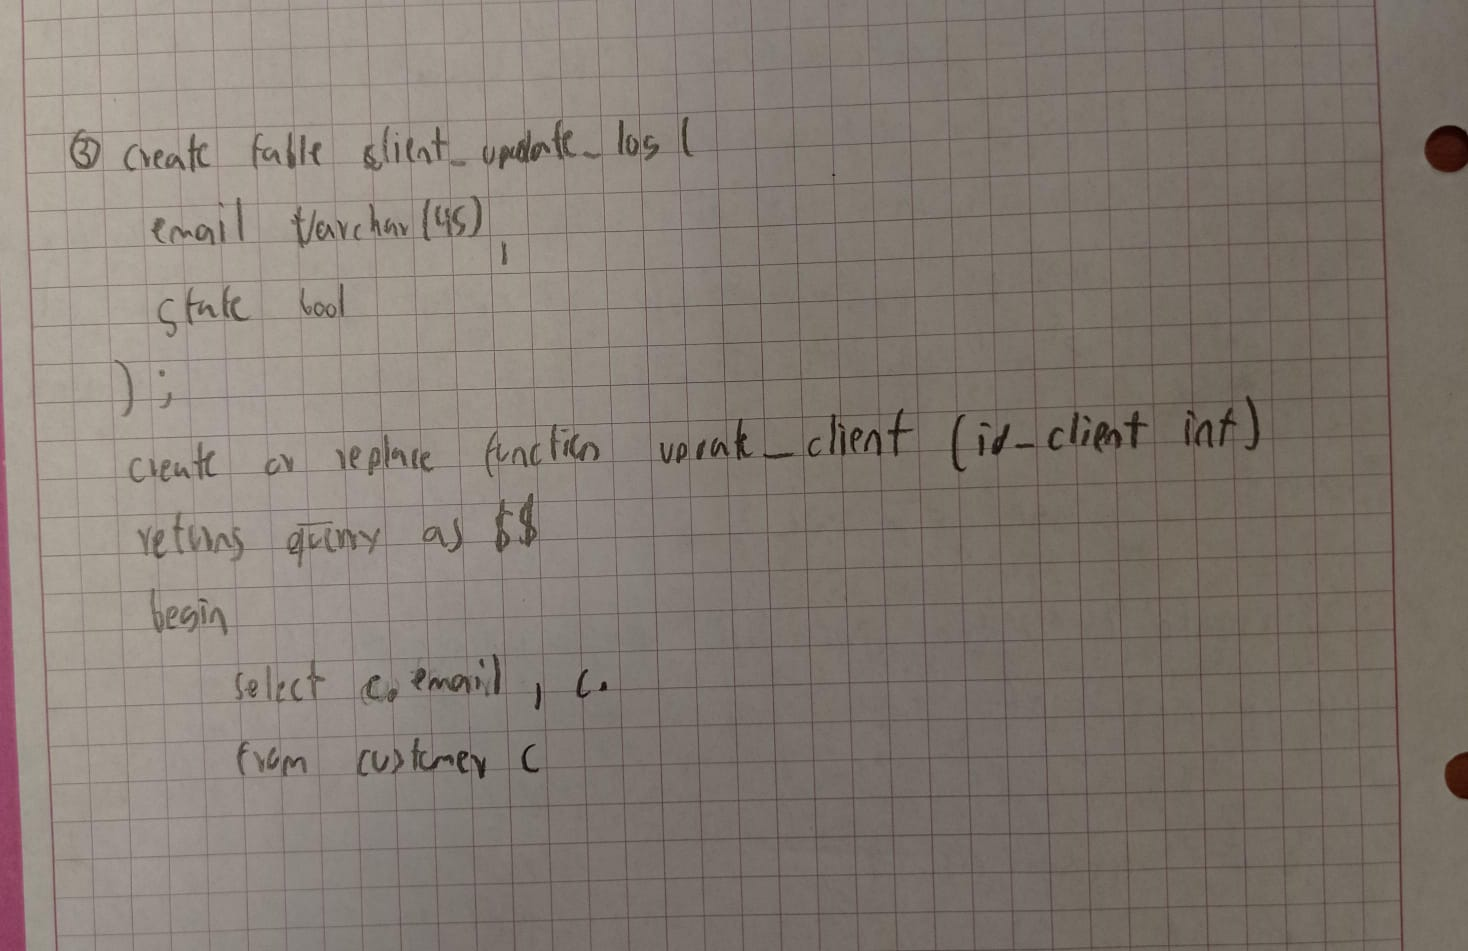 ③ create table client_update_log (
email varchar(45),
state bool
);
create or replace function update_client (id_client int)
returns query as $$
begin
select c.email, c.
from customer c